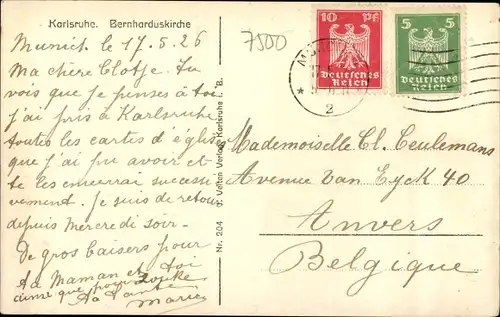 Karlsruhe. Bernharduskirche
7500
Munich le 17.5.26
Ma chere Clotje. Tu
vois que je penses à toi
j'ai pris à Karlsruhe
toutes les cartes d'église
que j'ai pu avoir et
te les enverrai successi
vement. Je suis de retour
depuis Mercredi soir.
De gros baisers pour
ta Maman et toi
ainsi que pour
ta tante
Marie
Nr. 204 J. Velten Verlag Karlsruhe i. B.
10 Pf
Deutsches
Reich
5 5
Deutsches
Reich
2
Mademoiselle Cl. Ceulemans
Avenue Van Eyck 40
Anvers
Belgique